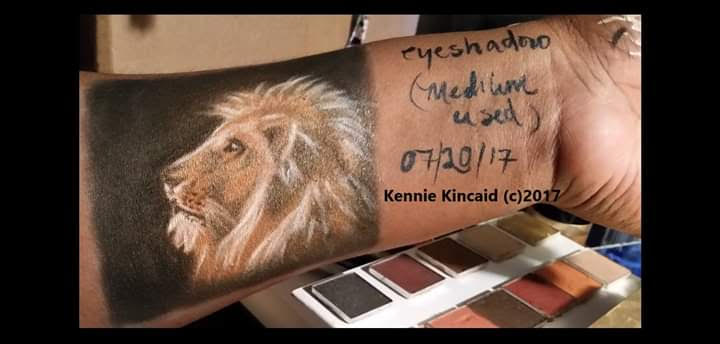 eyeshadow
(Medium
used)
07/20/17
Kennie Kincaid (c)2017